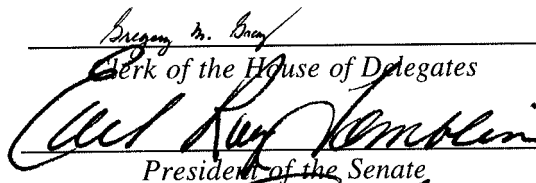 Gregory M. Gray
Clerk of the House of Delegates
Earl Ray Tomblin
President of the Senate